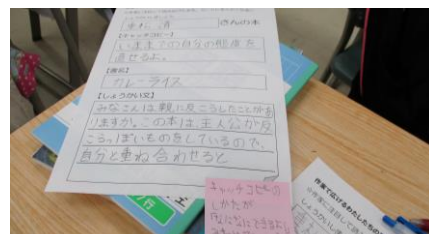 重松 清 さんの本
【キャッチコピー】
いままでの自分の態度を
直せるよ。
【題名】
カレーライス
【しょうかい文】
みなさんは親に反こうしたことがあ
りますか。この本は主人公が反
こうっぽいものをしているので、
自分と重ね合わせると
キャッチコピーの
しかたが
作家で広げるわたしたちの